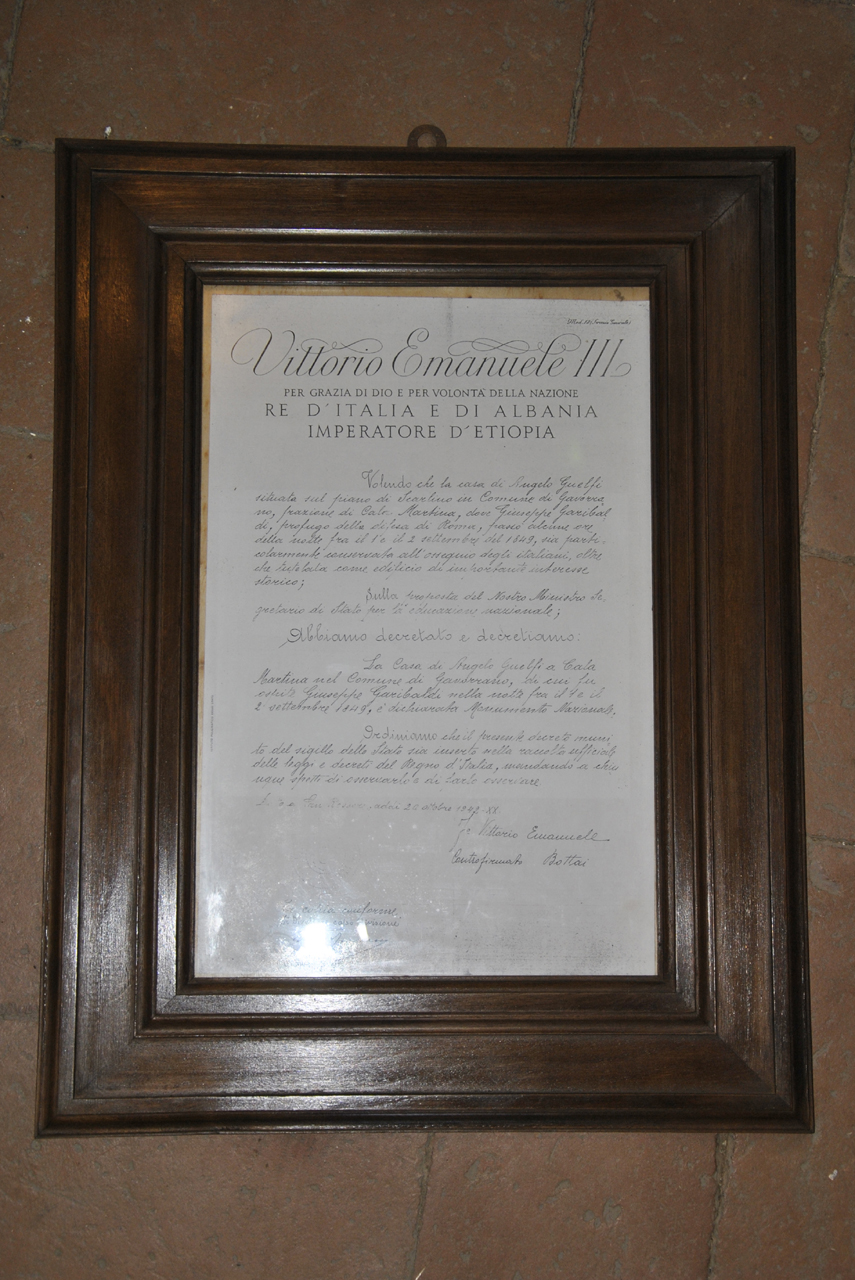 Vittorio Emanuele III
PER GRAZIA DI DIO E PER VOLONTA' DELLA NAZIONE
RE D'ITALIA E DI ALBANIA
IMPERATORE D'ETIOPIA
Volendo che la casa di Angelo Guelfi
situata sul piano di Scarlino in Comune di Gavorra
no, frazione di Cala Martina, dove Giuseppe Garibal
di, profugo della difesa di Roma, passò alcune ore
della notte fra il 1° e il 2 settembre del 1849, sia parti-
colarmente conservata all'ossequio degli italiani, oltre
che tutelata come edificio di importante interesse
storico;
Sulla proposta del Nostro Ministro Se-
gretario di Stato per la educazione nazionale;
Abbiamo decretato e decretiamo:
La Casa di Angelo Guelfi a Cala
Martina nel Comune di Gavorrano, in cui fu
ospite Giuseppe Garibaldi nella notte fra il 1° e il
2 settembre 1849, è dichiarata Monumento Nazionale.
Ordiniamo che il presente decreto muni
to del sigillo dello Stato sia inserto nella raccolta ufficiale
delle leggi e decreti del Regno d'Italia, mandando a chiu
nque spetti di osservarlo e di farlo osservare.
San Rossore, addì 20 ottobre 1942-XX
Fto Vittorio Emanuele
Controfirmato Bottai
copia conforme